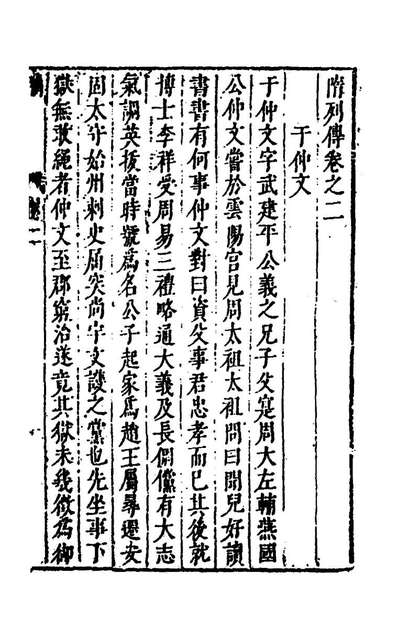 隋列傳卷之二
于仲文
于仲文字武建平公義之兄子父寔周大左輔燕國
公仲文嘗於雲陽宮見周太祖太祖問曰聞兒好讀
書書有何事仲文對曰資父事君忠孝而已其後就
博士李祥受周易三禮略通大義及長倜儻有大志
氣調英拔當時號爲名公子起家爲趙王屬尋遷安
固太守始州刺史屈突尚宇文護之黨也先坐事下
獄無敢繩者仲文至郡窮治遂竟其獄未幾徵爲御